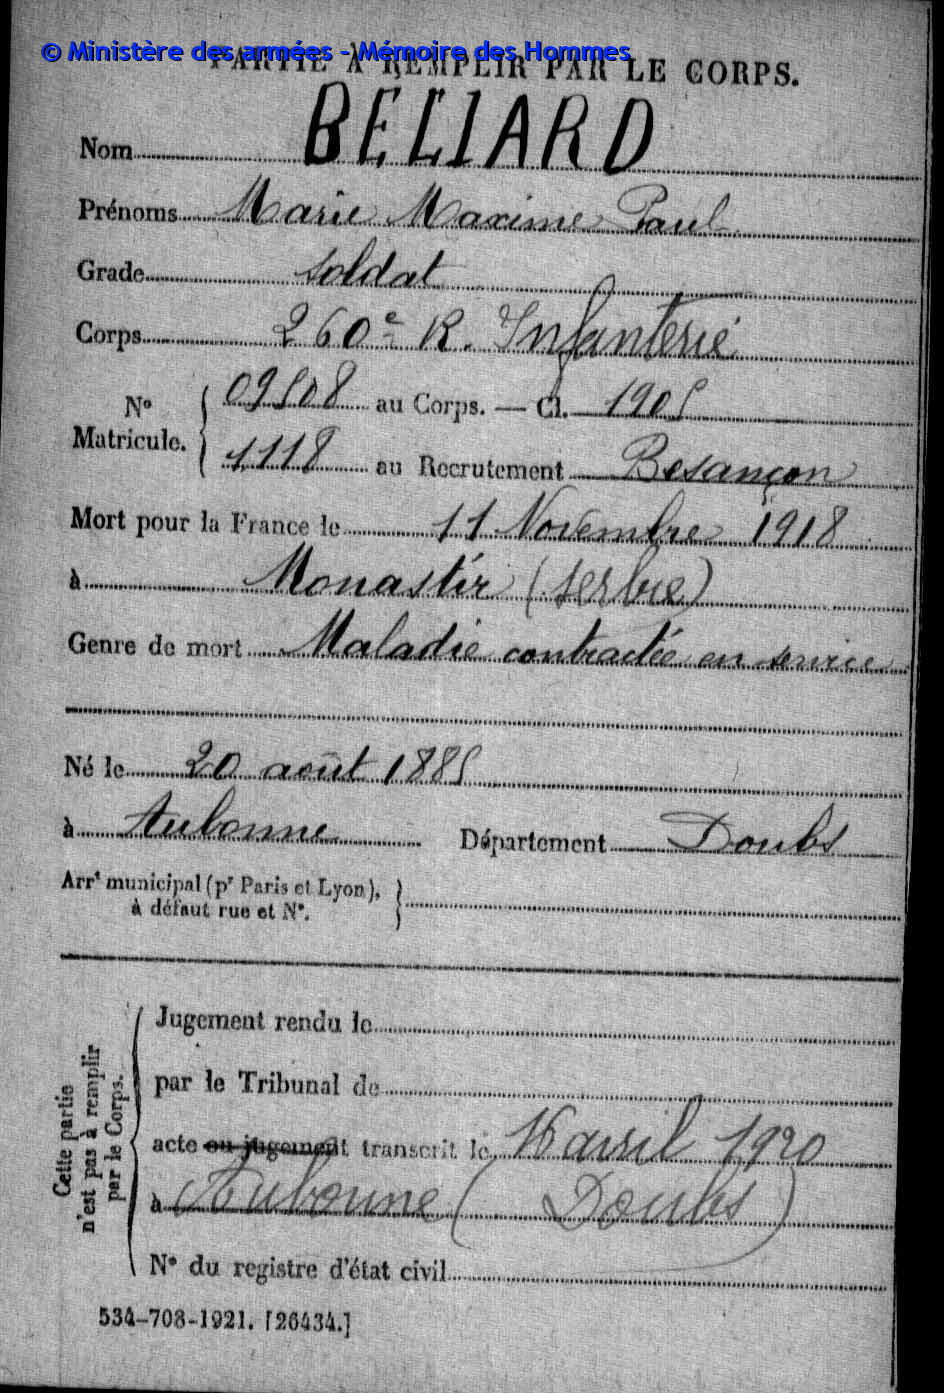 © Ministère des armées - Mémoire des Hommes
PARTIE À REMPLIR PAR LE CORPS.
Nom BELIARD
Prénoms Marie Maxime Paul
Grade soldat
Corps 260e R. Infanterie
No Matricule. { 09508 au Corps. — Cl. 1905
1118 au Recrutement Besançon
Mort pour la France le 11 Novembre 1918
à Monastir (Serbie)
Genre de mort Maladie contractée en service
Né le 20 août 1885
à Aubonne Département Doubs
Arrt municipal (pr Paris et Lyon), à défaut rue et No.
Cette partie n'est pas à remplir par le Corps.
Jugement rendu le
par le Tribunal de
acte ou jugement transcrit le 16 avril 1920
à Aubonne (Doubs)
No du registre d'état civil
534-708-1921. [26434.]